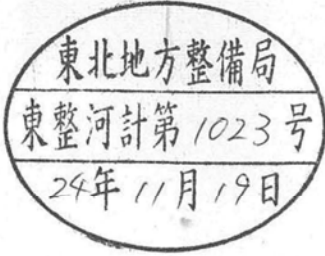 東北地方整備局
東整河計第1023号
24年11月19日